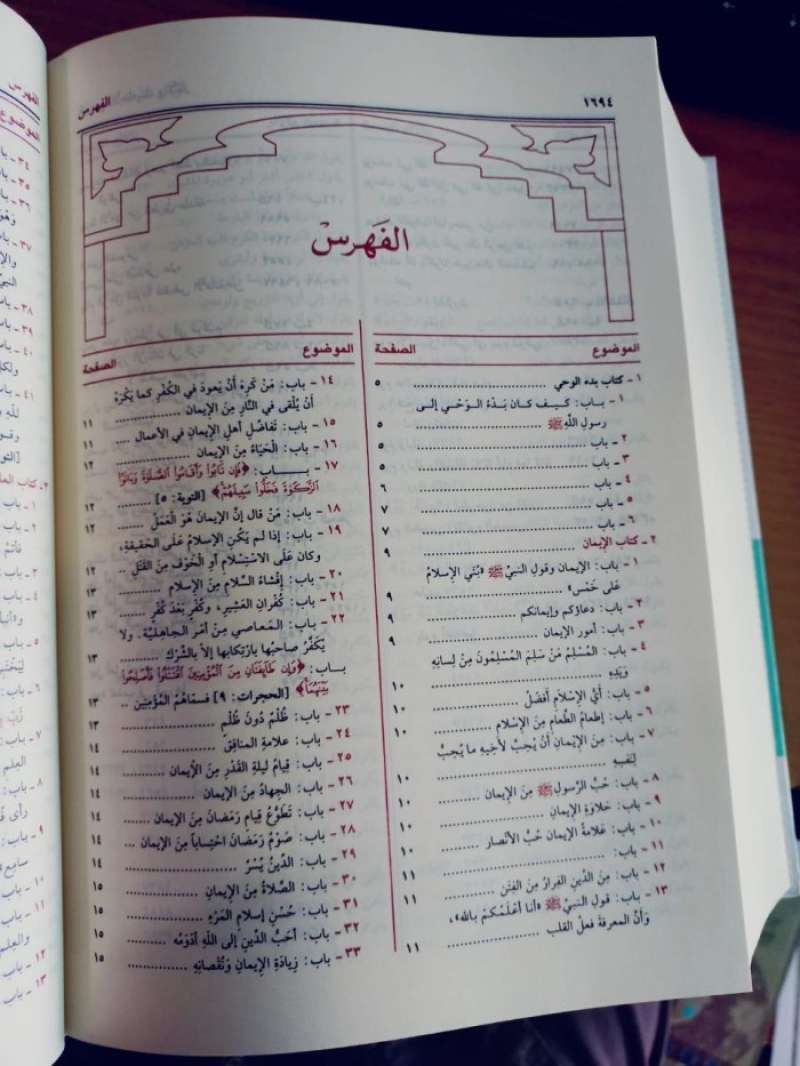 ١٦٩٤
الفهرس
الفَهرسْ
الموضوع الصفحة
١ - كتاب بدء الوحي .............. ٥
١ - باب: كيف كان بَدْءُ الوَحْيِ إلى
رسولِ اللَّهِ ﷺ .............. ٥
٢ - باب .............. ٥
٣ - باب .............. ٥
٤ - باب .............. ٦
٥ - باب .............. ٧
٦ - باب .............. ٧
٢ - كتاب الإيمان .............. ٩
١ - باب: الإيمان وقولِ النبيِّ ﷺ «بُنِيَ الإسلامُ
عَلى خَمْسٍ» .............. ٩
٢ - باب: دعاؤكم وإيمانكم .............. ٩
٣ - باب: أمور الإيمان .............. ٩
٤ - باب: المُسْلِمُ مَنْ سَلِمَ المُسْلِمُونَ مِنْ لِسانِهِ
وَيَدِهِ .............. ١٠
٥ - باب: أيُّ الإسْلامِ أَفضَلُ .............. ١٠
٦ - باب: إطعامُ الطَّعامِ مِنَ الإسْلامِ .............. ١٠
٧ - باب: مِنَ الإيْمَانِ أَنْ يُحِبَّ لأَخِيهِ ما يُحِبُّ
لِنَفسِهِ .............. ١٠
٨ - باب: حُبُّ الرَّسولِ ﷺ مِنَ الإيمان .............. ١٠
٩ - باب: حَلاوَةِ الإيمانِ .............. ١٠
١٠ - باب: عَلامةُ الإيمان حُبُّ الأَنْصار .............. ١٠
١١ - باب: .............. ١١
١٢ - باب: مِنَ الدِّينِ الفِرارُ مِنَ الفِتَنِ .............. ١١
١٣ - باب: قولِ النبيِّ ﷺ «أنا أَعْلَمُكمْ بالله»،
وَأَنَّ المعرفةَ فعلُ القلب .............. ١١
الموضوع الصفحة
١٤ - باب: مَنْ كَرِهَ أَنْ يَعودَ في الكُفْرِ كما يَكْرَهُ
أَنْ يُلْقى في النَّارِ مِنَ الإيمان .............. ١١
١٥ - باب: تَفاضُلِ أهلِ الإيمانِ في الأعمال .... ١١
١٦ - باب: الْحَيَاءُ مِنَ الإيمان .............. ١٢
١٧ - بـــاب: ﴿فَإِن تَابُوا۟ وَأَقَامُوا۟ ٱلصَّلَوٰةَ وَءَاتَوُا۟
ٱلزَّكَوٰةَ فَخَلُّوا۟ سَبِيلَهُمْ﴾ [التوبة: ٥] ........ ١٢
١٨ - باب: مَنْ قال إنَّ الإيمانَ هُوَ العَمَلُ ........ ١٢
١٩ - باب: إذا لم يَكُنِ الإسلامُ عَلَى الحَقيقةِ،
وكان عَلَى الاسْتِسْلامِ أوِ الْخَوْفِ مِنَ القَتْلِ .. ١٢
٢٠ - باب: إفْشاءُ السَّلامِ مِنَ الإسلامِ ........ ١٣
٢١ - باب: كُفْرانِ العَشيرِ، وكُفْرٍ بَعْدَ كُفْرٍ ........ ١٣
٢٢ - باب: المَعاصي مِنْ أمْرِ الجاهليَّةِ، ولا
يَكفُرُ صاحبُها بارْتِكابها إلاَّ بالشِّرْكِ ........ ١٣
بـاب: ﴿وَإِن طَآئِفَتَانِ مِنَ ٱلْمُؤْمِنِينَ ٱقْتَتَلُوا۟ فَأَصْلِحُوا۟
بَيْنَهُمَا﴾ [الحجرات: ٩] فَسمَّاهُمُ المُؤْمِنِينَ .. ١٣
٢٣ - باب: ظُلْمٌ دُونَ ظُلْمٍ .............. ١٣
٢٤ - باب: علامةِ المنافِقَ .............. ١٤
٢٥ - باب: قِيامُ ليلةِ القَدْرِ مِنَ الأيمان ........ ١٤
٢٦ - باب: الجِهادُ مِنَ الإيمان .............. ١٤
٢٧ - باب: تَطَوُّعُ قيامِ رَمَضانَ مِنَ الإيمان ...... ١٤
٢٨ - باب: صَوْمُ رَمَضانَ احْتِساباً مِنَ الإيمان ... ١٤
٢٩ - باب: الدِّينُ يُسْرٌ .............. ١٤
٣٠ - باب: الصَّلاةُ مِنَ الإيمانِ .............. ١٥
٣١ - باب: حُسْنِ إسلامِ المَرْءِ .............. ١٥
٣٢ - باب: أحَبُّ الدِّينِ إلى اللَّهِ أدْوَمُهُ .......... ١٥
٣٣ - باب: زِيادَةِ الإيمانِ وَنُقْصَانِهِ .............. ١٥
الفهرس
الموضوع
٣٤ - باب
٣٥ - باب
٣٦ - باب
٣٧ - باب
والإ
٣٨ - باب
٣٩ - باب
٤٠ - باب
٤١ - باب
١ - باب
٢ - باب
٣ - باب
٤ - باب
٥ - باب
٦ - باب
٧ - باب
العِلم
٨ - باب
٩ - باب
١٠ - باب
١١ - باب
والعِلم
١٢ - باب
١٣ - باب